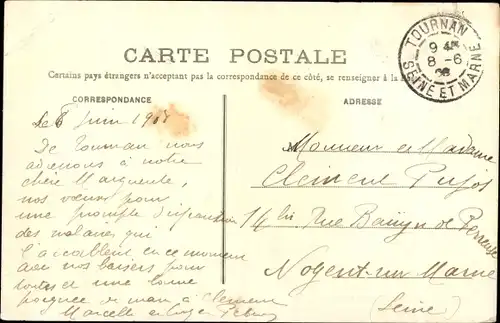 CARTE POSTALE
Certains pays étrangers n'acceptant pas la correspondance de ce côté, se renseigner à la
CORRESPONDANCE
ADRESSE
TOURNAN
9
8 - 6
08
SEINE ET MARNE
Le 8 Juin 1908
De Tournan nous
adressons à notre
chère Marguerite,
nos vœux pour
une prompte disparition
des malaises qui
l'accablent en ce moment
avec nos baisers pour
toutes et une bonne
poignée de main à Clément
Marcelle et
Monsieur et Madame
Clément Pujos
14 bis Rue Bauyn de Perreuse
Nogent-sur Marne
(Seine)